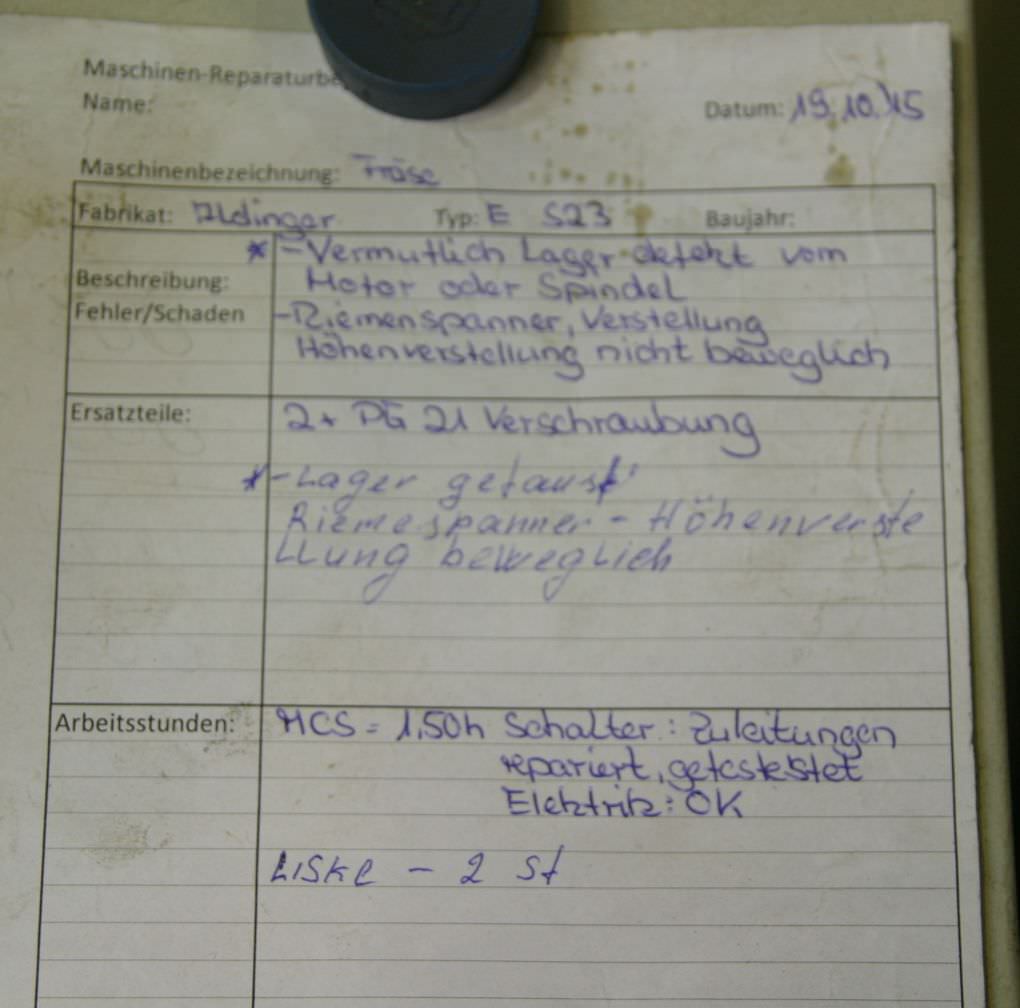 Maschinen-Reparaturbe
Name:
Datum: 19.10.15
Maschinenbezeichnung: Fräse
Fabrikat: Aldinger Typ: E S23 Baujahr:
* - Vermutlich Lager defekt vom
Beschreibung: Motor oder Spindel
Fehler/Schaden - Riemenspanner, Verstellung
Höhenverstellung nicht beweglich
Ersatzteile: 2x PG 21 Verschraubung
* - Lager getaust
Riemespanner - Höhenverste
llung beweglich
Arbeitsstunden: MCS = 1,50h Schalter: Zuleitungen
repariert, getestestet
Elektrik: OK
Liske - 2 St